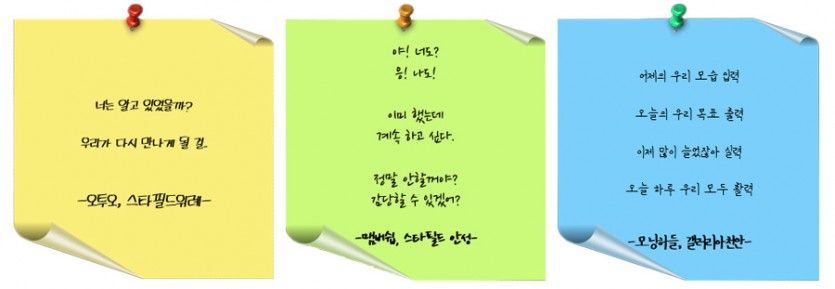 너는 알고 있었을까?
우리가 다시 만나게 될 걸..
-오투오, 스타필드위례-
야! 너도?
응! 나도!
이미 했는데
계속 하고 싶다.
정말 안할꺼야?
감당할 수 있겠어?
-멤버쉽, 스타필드 안성-
어제의 우리 모습 입력
오늘의 우리 목표 출력
이제 많이 늘었잖아 실력
오늘 하루 우리 모두 활력
-모닝허들, 갤러리아천안-